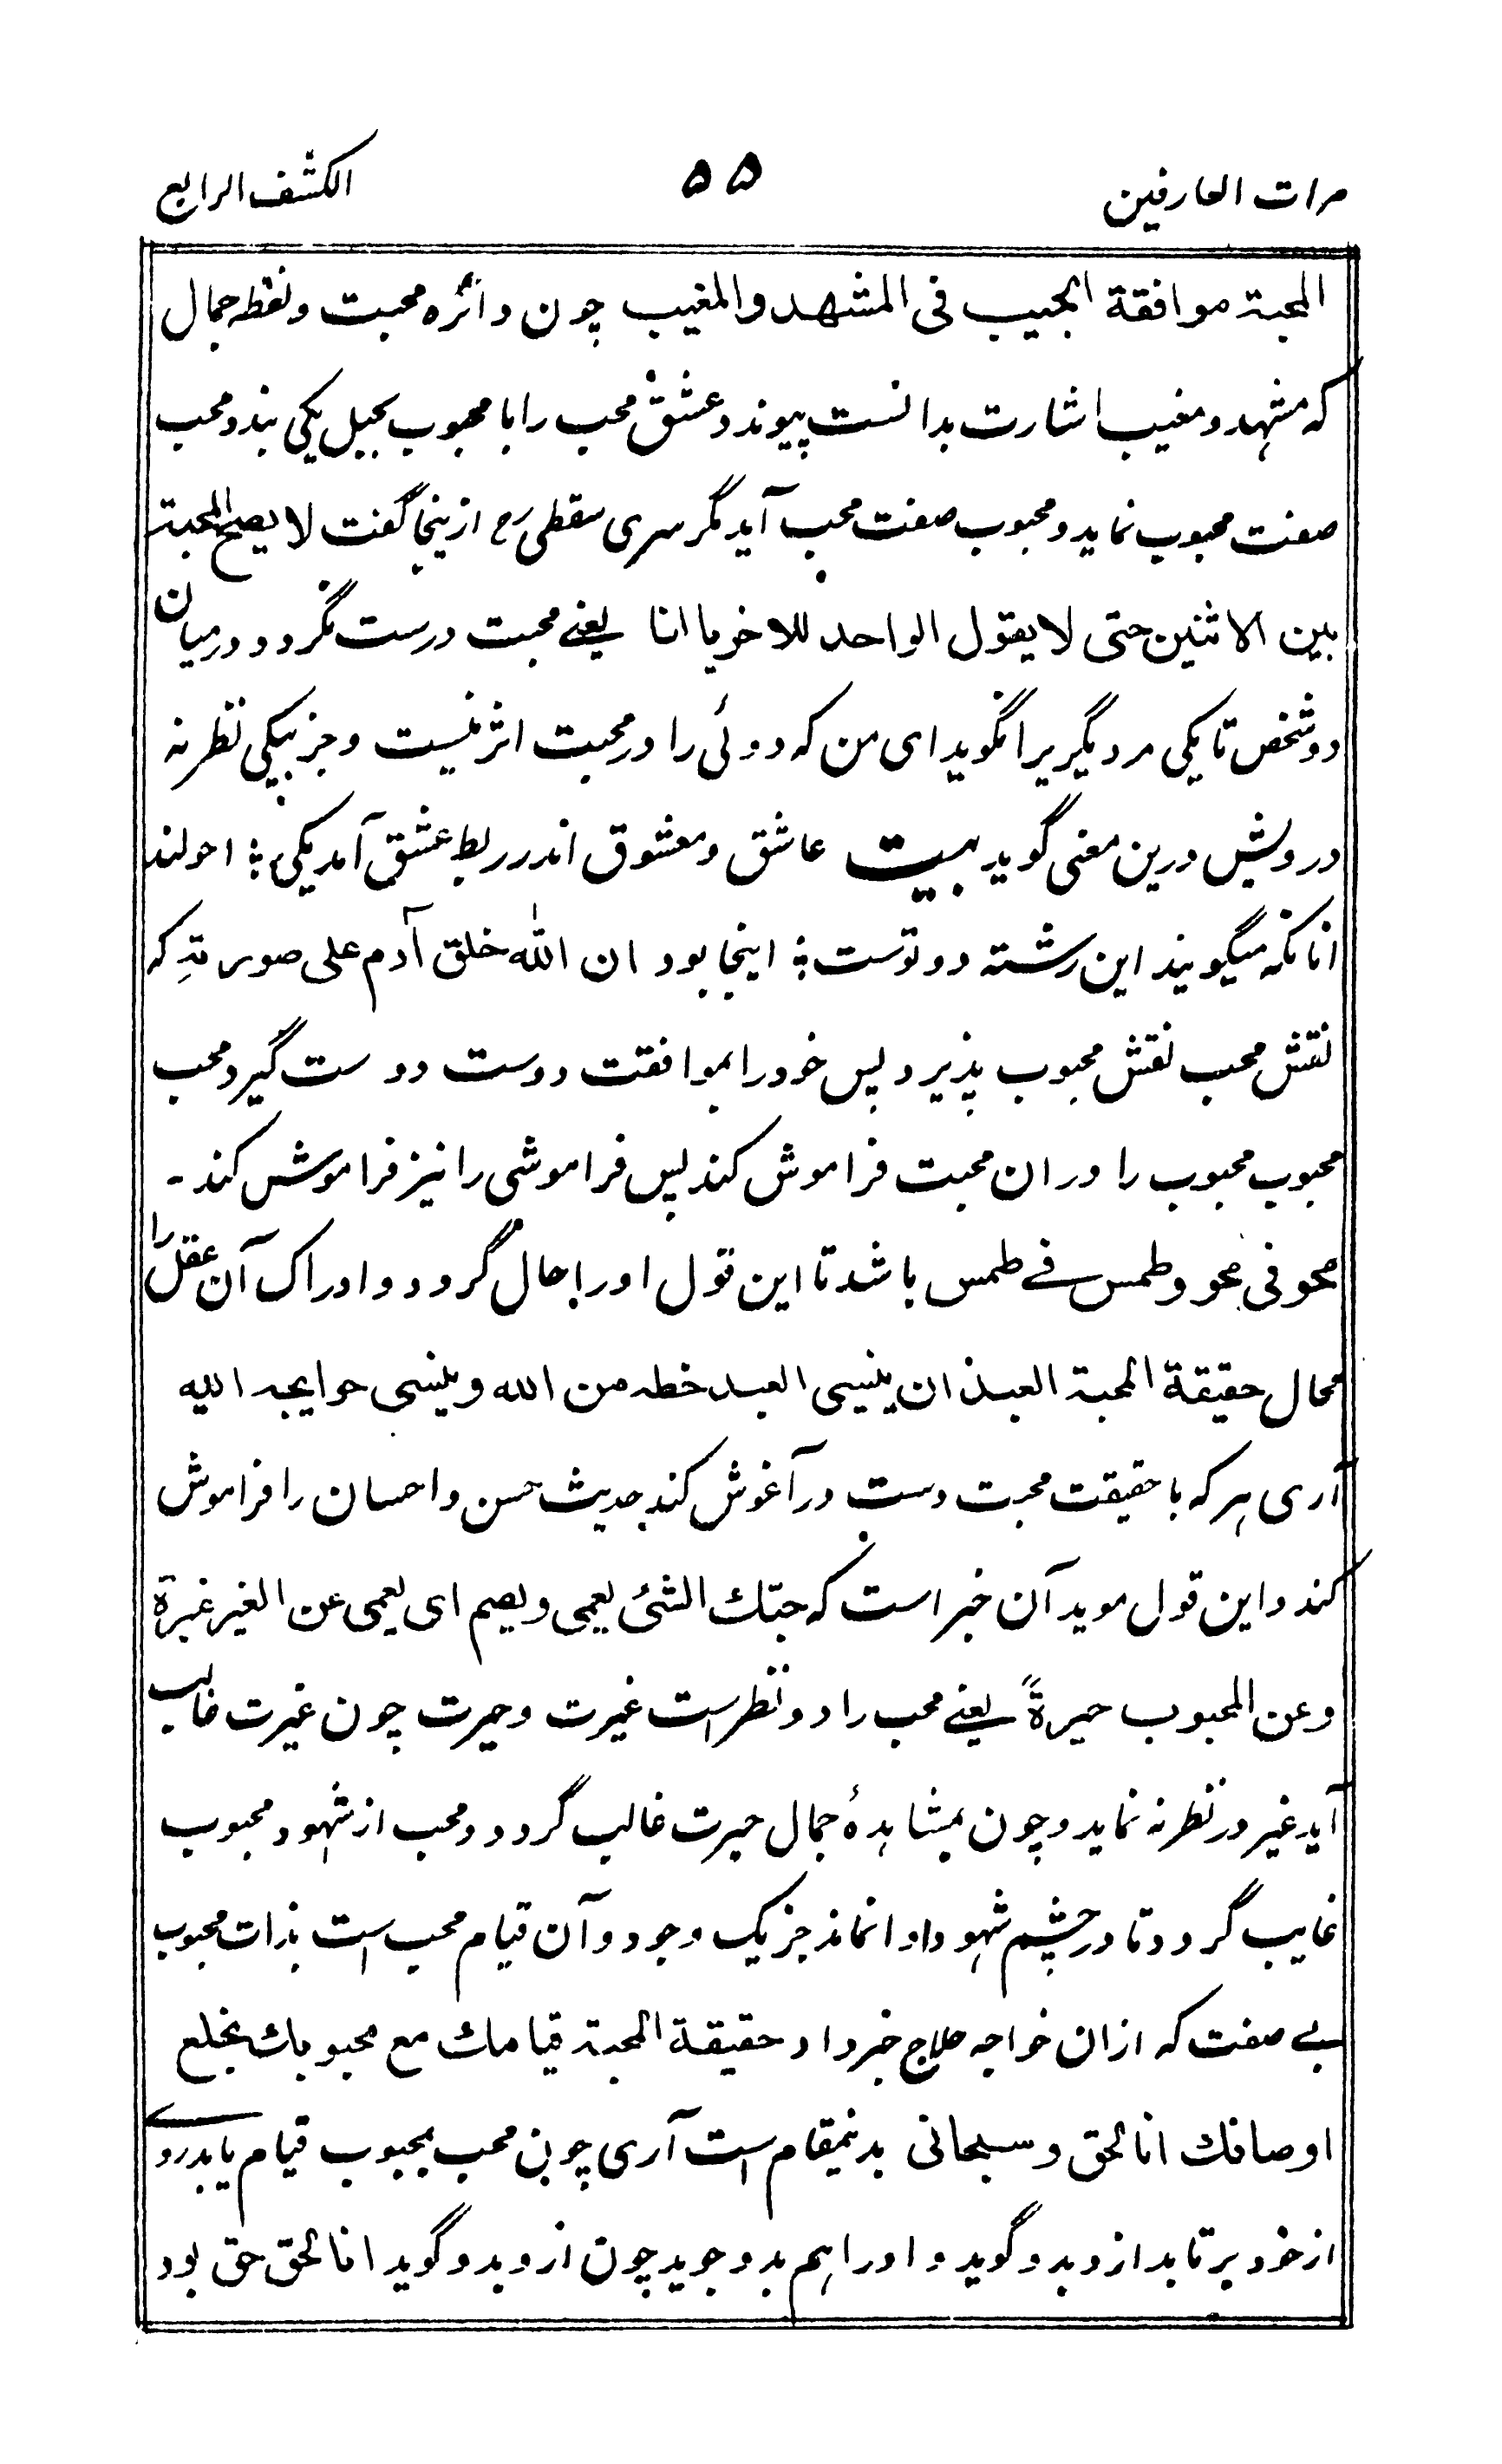 مرات العارفین ۵۵ الکشف الرابع
المحبة موافقة الحبیب فی المشهد والمغیب چون دائره محبت ونقطه جمال
که مشهد ومغیب اشارت بدانست پیوندد عشق محب را با محبوب بحبل یکی بندد محب
صفت محبوب نماید ومحبوب صفت محب آید مگر سری سقطی رح ازینجا گفت لا یصح المحبة
بین الاثنین حتی لا یقول الواحد للاخر یا انا یعنے محبت درست نگردد درمیان
دو شخص تا یکی مر دیگریرا نگوید ای من که دوئی را در محبت اثر نیست وجز بیکی نظر نه
درویش درین معنی گوید بیت عاشق ومعشوق اندر ربط عشق آمد یکی ؛ احولند
انانکه میگویند این رشته دو توست ؛ اینجا بود ان الله خلق آدم علی صورته که
نقش محب نقش محبوب پذیرد پس خود را بموافقت دوست دوست گیرد محب
محبوب محبوب را دران محبت فراموش کند پس فراموشی را نیز فراموش کند ۔
محو فی محو وطمس فے طمس باشد تا این قول اورا حال گردد وادراک آن عقل را
محال حقیقة المحبة العبد ان ینسی العبد خطه من الله وینسی حوایجه الیه
آری هر که با حقیقت محبت دست در آغوش کند حدیث حسن واحسان را فراموش
کند واین قول موید آن خبر است که حبّك الشیٔ یعمی ویصم ای یعمی عن الغیر غیرة
وعن المحبوب حیرةً یعنے محب را دو نظر است غیرت وحیرت چون غیرت غالب
آید غیر در نظر نه نماید وچون بمشاهدهٔ جمال حیرت غالب گردد ومحب از شهود محبوب
غایب گردد تا در چشم شهود او نماند جز یک وجود وآن قیام محب است بذات محبوب
بے صفت که ازان خواجه حلاج خبر داد حقیقة المحبة قیامك مع محبوبك بخلع
اوصافك انا الحق وسبحانی بدینمقام است آری چون محب بمحبوب قیام یابد رو
از خود برتابد ازو بدو گوید واورا هم بدو جوید چون ازو بدو گوید انا الحق حق بود